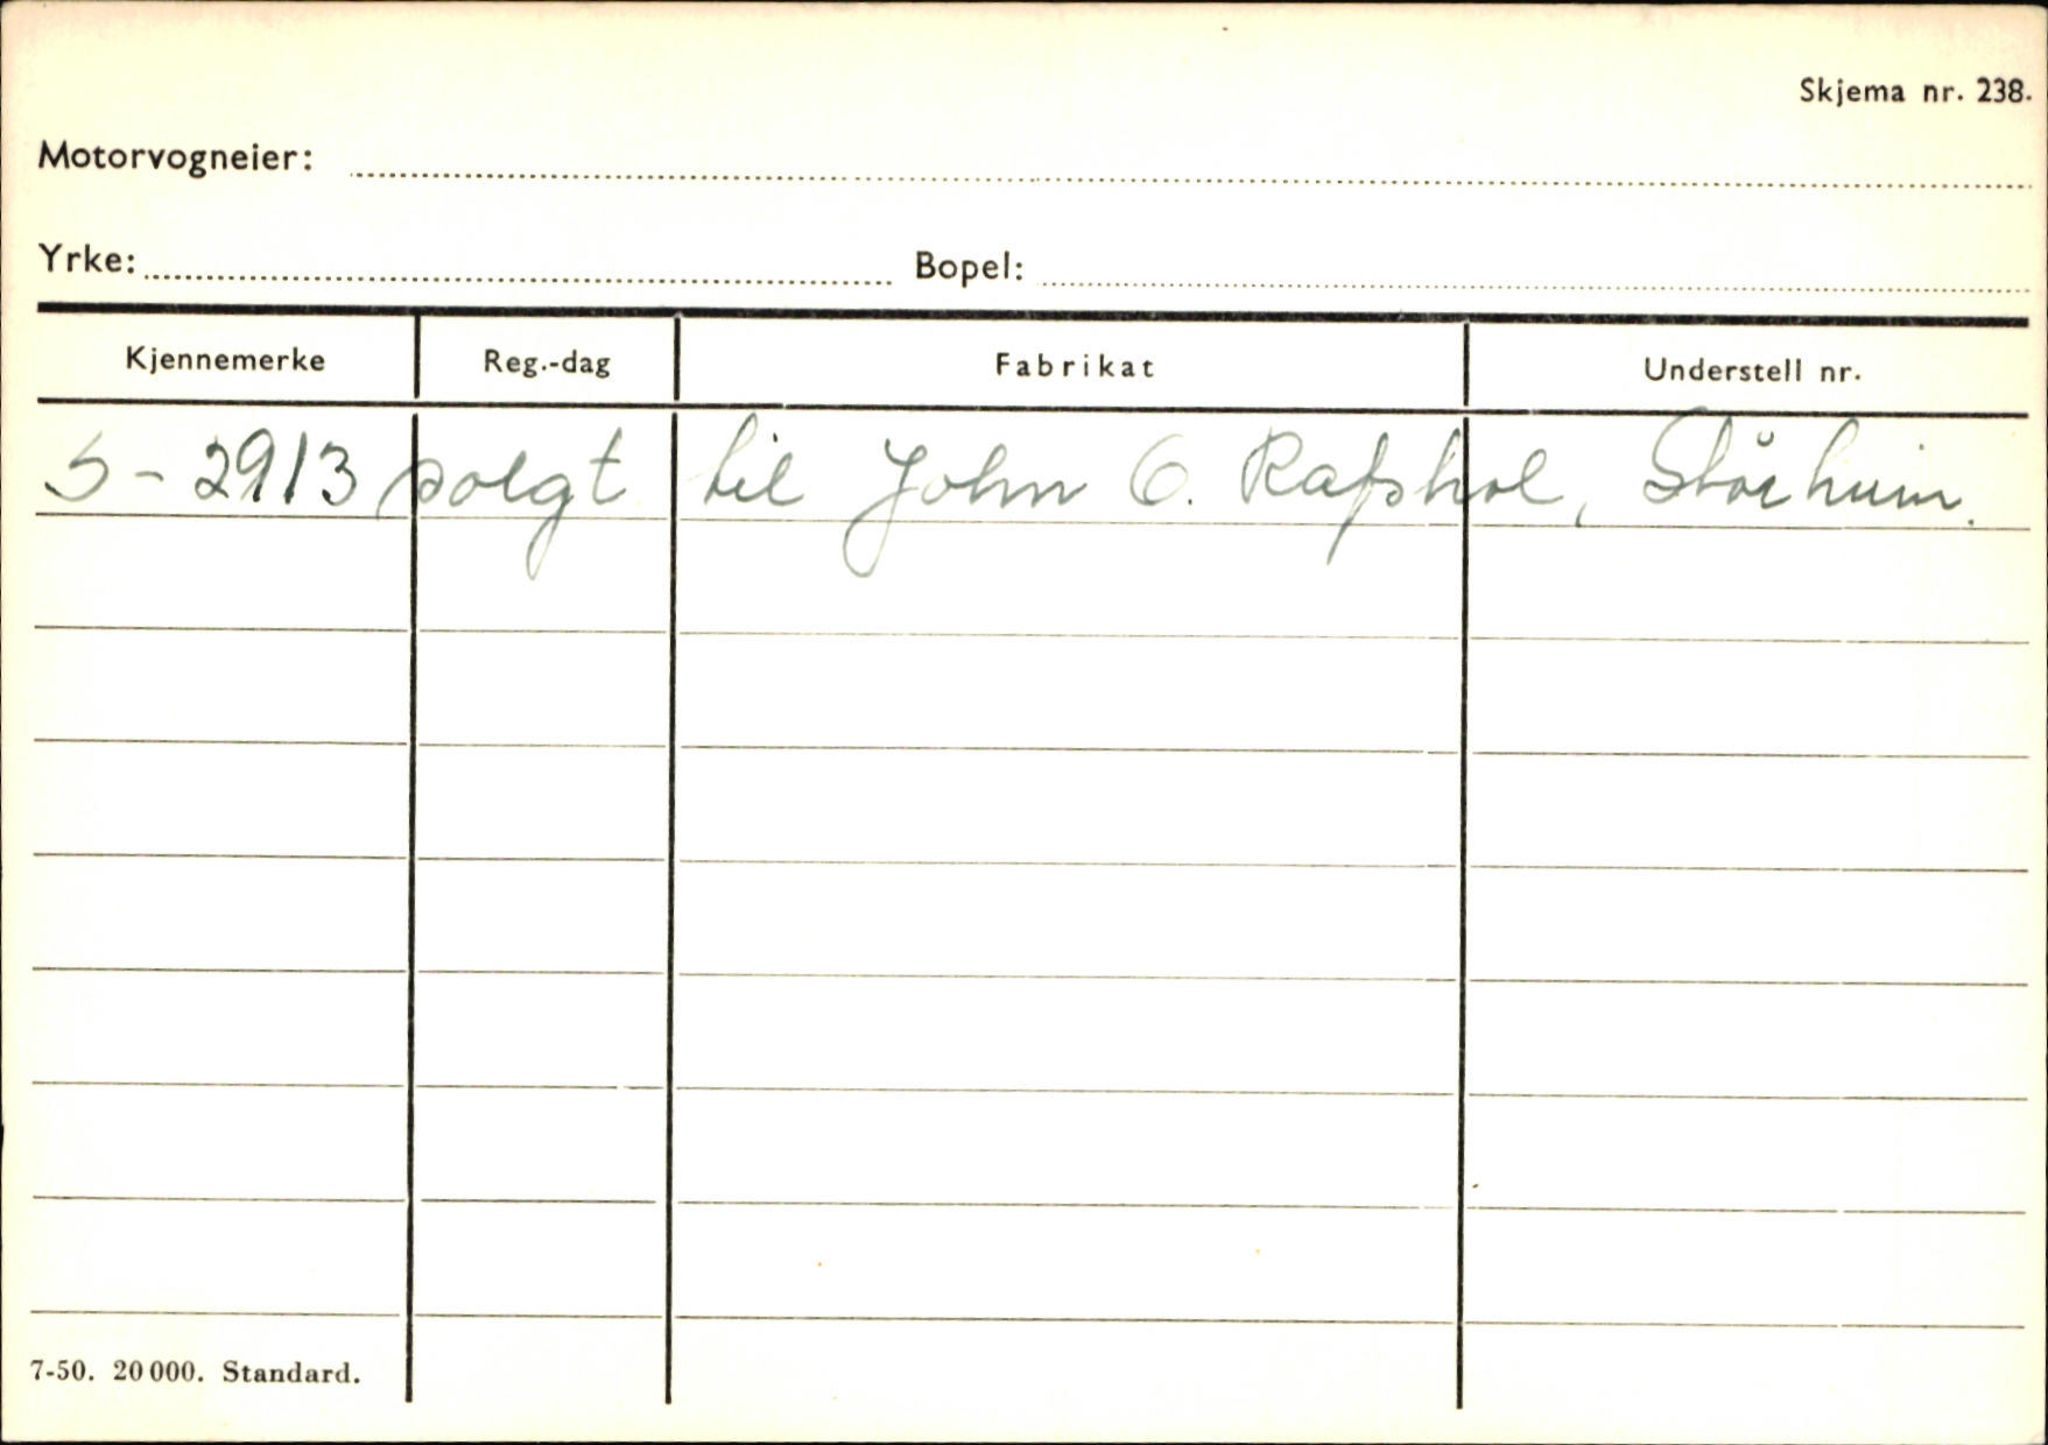 Skjema nr. 238.
Motorvogneier:
Yrke: Bopel:
Kjennemerke Reg.-dag Fabrikat Understell nr.
S-2913 solgt til John O. Rafshol, Stårheim.
7-50. 20 000. Standard.